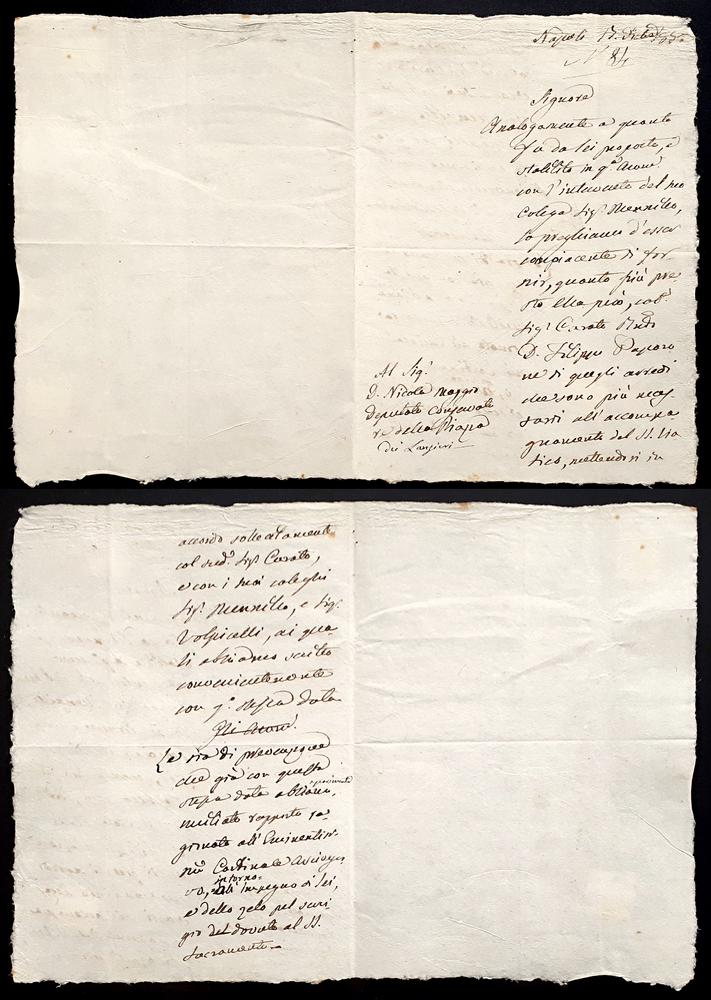 Napoli 17.
N.° 84
Signore
Analogamente a quanto
fu da lei proposto, e
stabilito in q.a Amm.e
con l'intervento del suo
Collega Sig.r Mennillo,
la preghiamo d'esser
compiacente di for-
nir, quanto più pre-
sto ella può, col
Sig.r Curato
D. Filippo
ne di quegli arredi
che sono più neces-
sarii all'accompa-
gnamento del SS. Via-
tico, mettendosi in
Al Sig.r
D. Nicola Maggio
Deputato Conservato-
re della Piazza
dei Lanzieri
accordo sollecitamente
col sud.o Sig.r Curato,
e con i suoi colleghi
Sig.r Mennillo, e Sig.r
Volpicelli, ai qua-
li abbiamo scritto
convenientemente
con q.a stessa data
Gli Amm.i
Le sia di prevenzione
che già con questa
stessa data abbiamo
umiliato rapporto ra-
gionato all'Eminentis-
mo Cardinale Arcivesco-
vo, intorno all'impegno di lei,
e dello zelo pel servi-
gio del dovuto al SS.
Sacramento.